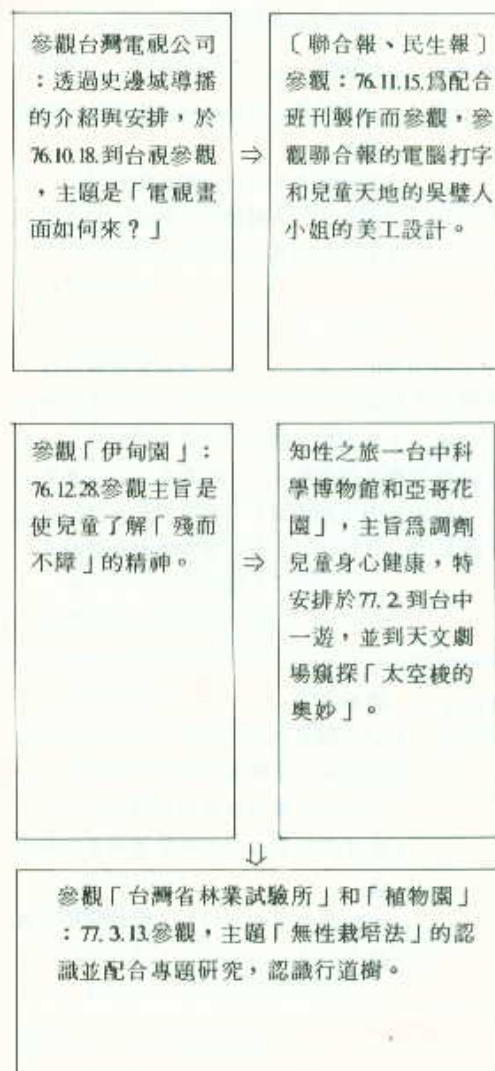 參觀台灣電視公司
：透過史邊城導播
的介紹與安排，於
76.10.18.到台視參觀
，主題是「電視畫
面如何來？」
⇒
〔聯合報、民生報〕
參觀：76.11.15.爲配合
班刊製作而參觀，參
觀聯合報的電腦打字
和兒童天地的吳璧人
小姐的美工設計。
參觀「伊甸園」：
76.12.28.參觀主旨是
使兒童了解「殘而
不障」的精神。
⇒
知性之旅一台中科
學博物館和亞哥花
園」，主旨爲調劑
兒童身心健康，特
安排於77.2.到台中
一遊，並到天文劇
場窺探「太空梭的
奧妙」。
⇓
參觀「台灣省林業試驗所」和「植物園」
：77.3.13.參觀，主題「無性栽培法」的認
識並配合專題研究，認識行道樹。